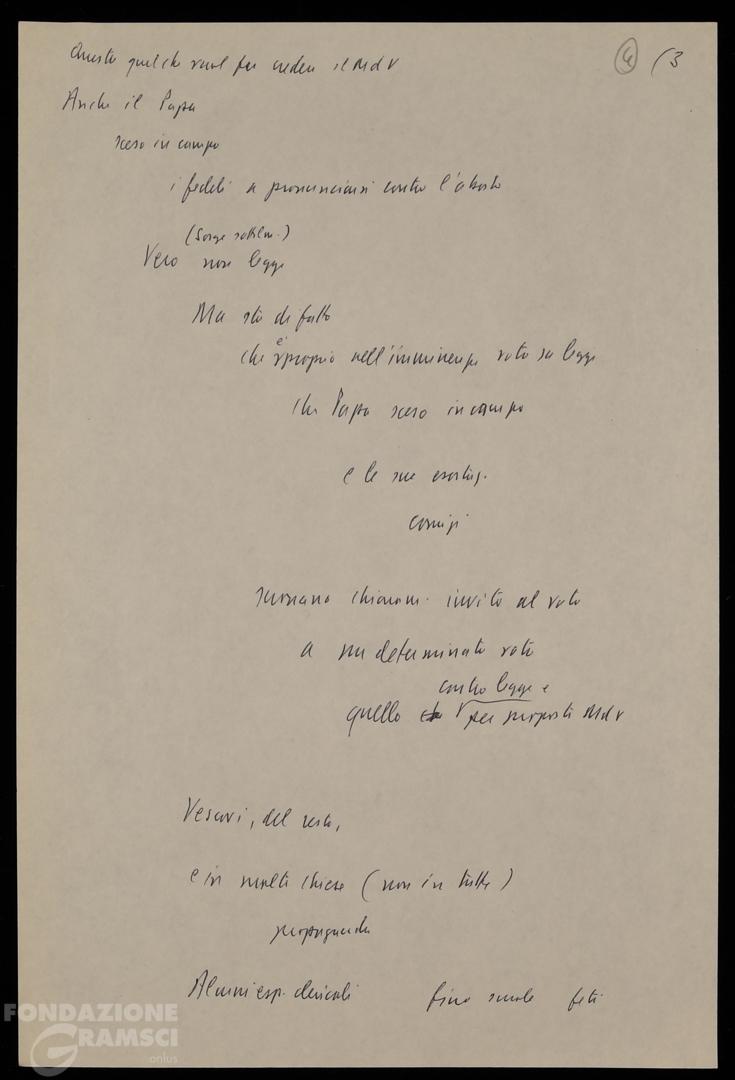 Questo quel che vuol far credere il MdV
4 (3
Anche il Papa
sceso in campo
i fedeli a pronunciarsi contro l'aborto
(Sorge sottolin.)
Vero non legge
Ma sta di fatto
che è proprio nell'imminenza voto su legge
che Papa sceso in campo
e le sue esortaz.
comizi
suonano chiaram. invito al voto
a un determinato voto
contro legge e
quello per proposta MdV
Vescovi, del resto,
e in molte chiese (non in tutte)
propaganda
Alcuni esp. clericali fino scuole feti
FONDAZIONE
GRAMSCI
onlus